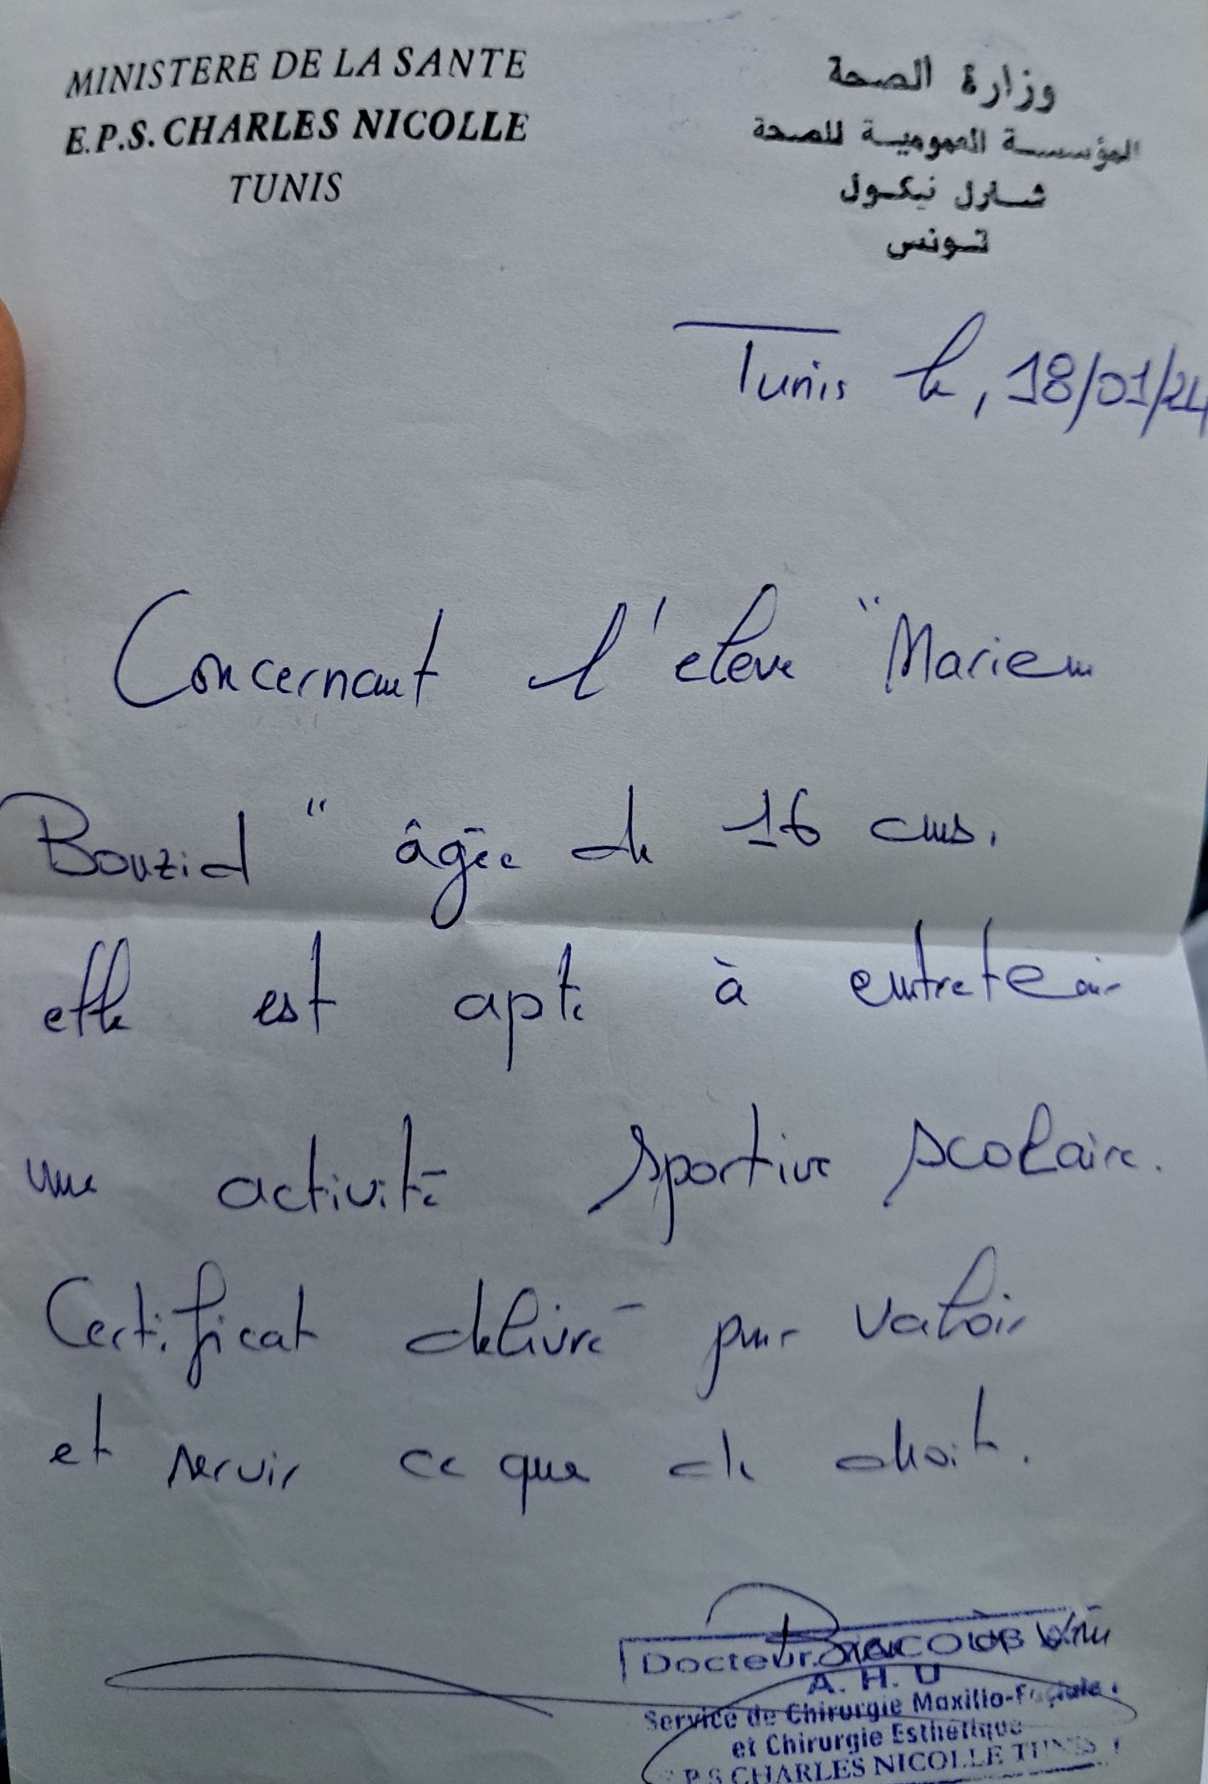 MINISTERE DE LA SANTE
E.P.S. CHARLES NICOLLE
TUNIS
وزارة الصحة
المؤسسة العمومية للصحة
شارل نيكول
تونس
Tunis le, 18/01/24
Concernant l'eleve "Mariem
Bouzid" âgée de 16 ans.
elle est apte à entretenir
une activité sportive scolaire.
Certificat delivré pour valoir
et servir ce que de droit.
Docteur
A. H. U
Service de Chirurgie Maxillo-Faciale
et Chirurgie Esthétique
E.P.S CHARLES NICOLLE TUNIS